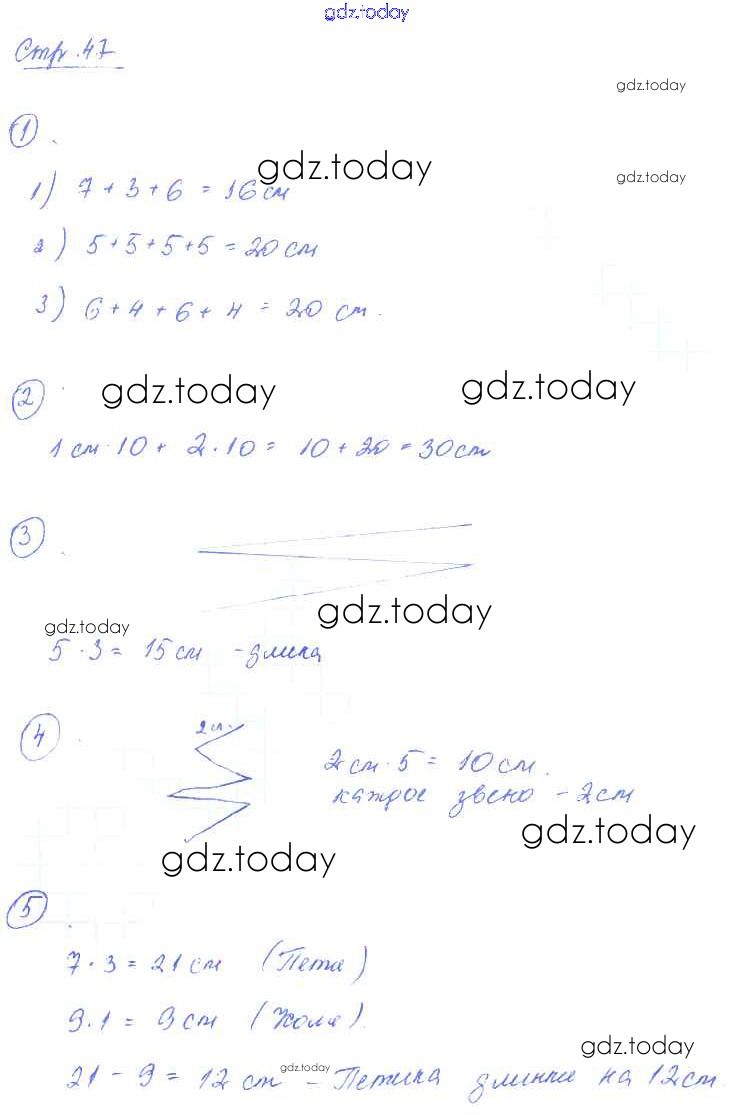 gdz.today
Стр. 47
gdz.today
1
gdz.today
gdz.today
1) 7 + 3 + 6 = 16 см
2) 5 + 5 + 5 + 5 = 20 см
3) 6 + 4 + 6 + 4 = 20 см.
2
gdz.today
gdz.today
1 см · 10 + 2 · 10 = 10 + 20 = 30 см
3
gdz.today
gdz.today
5 · 3 = 15 см - длина
4
2 см.
2 см · 5 = 10 см.
каждое звено - 2 см
gdz.today
gdz.today
5
7 · 3 = 21 см (Петя)
9 · 1 = 9 см (Коля).
gdz.today
gdz.today
21 - 9 = 12 см - Петина длиннее на 12 см.